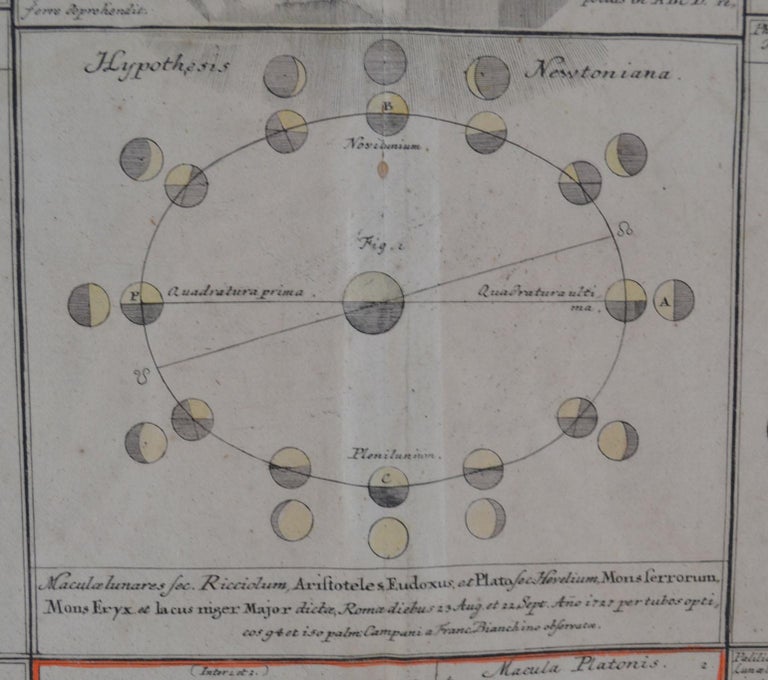 ferro deprehendit.
Hypothesis Newtoniana.
B
Novilunium.
Fig. 1
☊
P Quadratura prima.
Quadratura ulti
ma.
A
☋
Plenilunium.
C
Maculæ lunares sec. Ricciolum, Aristoteles, Eudoxus, et Plato sec. Hevelium, Mons serrorum,
Mons Eryx et lacus niger Major dictæ, Romæ diebus 23 Aug. et 22 Sept. Año 1727 per tubos opti,
cos 94 et 150 palm: Campani a Franc. Bianchino observatæ.
(Inter 1. et 2.)
Macula Platonis. 2.